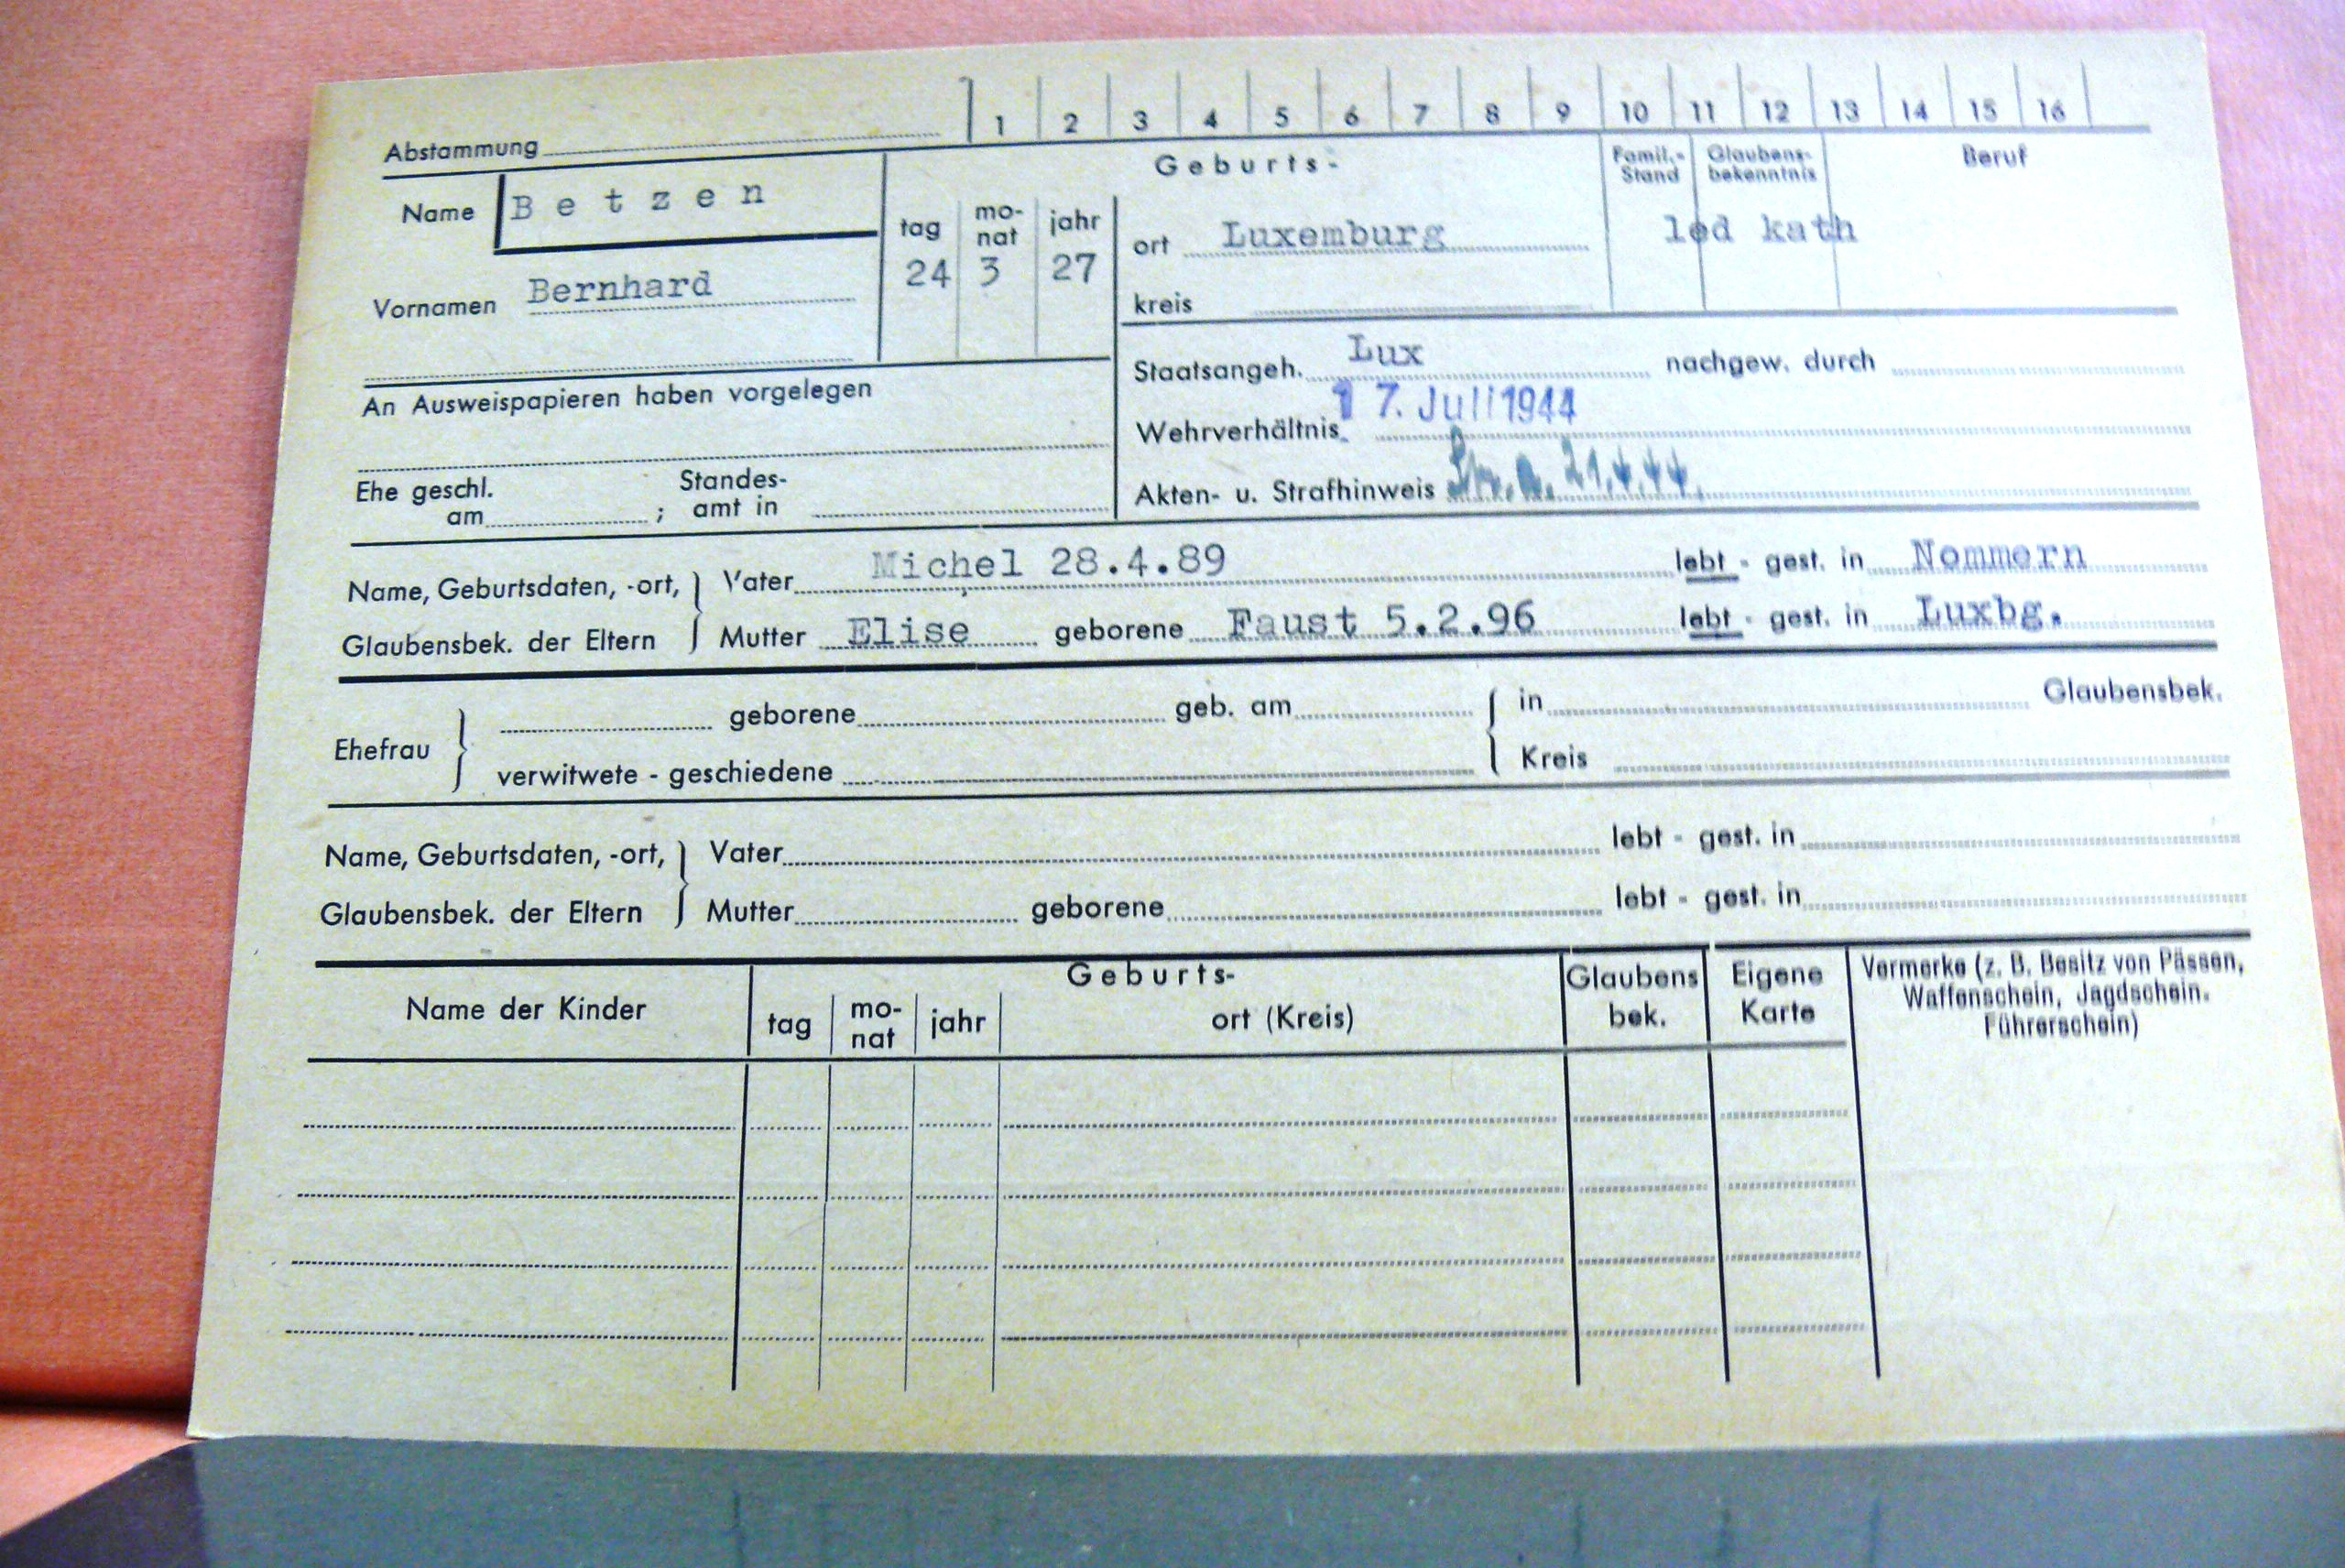 Abstammung 1 2 3 4 5 6 7 8 9 10 11 12 13 14 15 16
Name Betzen
Vornamen Bernhard
Geburts-
tag mo-nat jahr
24 3 27
ort Luxemburg
kreis
Famil.-Stand Glaubens-bekenntnis Beruf
led kath
An Ausweispapieren haben vorgelegen
Staatsangeh. Lux nachgew. durch
Wehrverhältnis 17. Juli 1944
Ehe geschl. am ; Standes-amt in
Akten- u. Strafhinweis 21.4.44.
Name, Geburtsdaten, -ort, Vater Michel 28.4.89 lebt - gest. in Nommern
Glaubensbek. der Eltern Mutter Elise geborene Faust 5.2.96 lebt - gest. in Luxbg.
Ehefrau geborene geb. am in Glaubensbek.
verwitwete - geschiedene Kreis
Name, Geburtsdaten, -ort, Vater lebt - gest. in
Glaubensbek. der Eltern Mutter geborene lebt - gest. in
Name der Kinder
Geburts-
tag mo-nat jahr ort (Kreis)
Glaubens bek.
Eigene Karte
Vermerke (z. B. Besitz von Pässen,
Waffenschein, Jagdschein.
Führerschein)